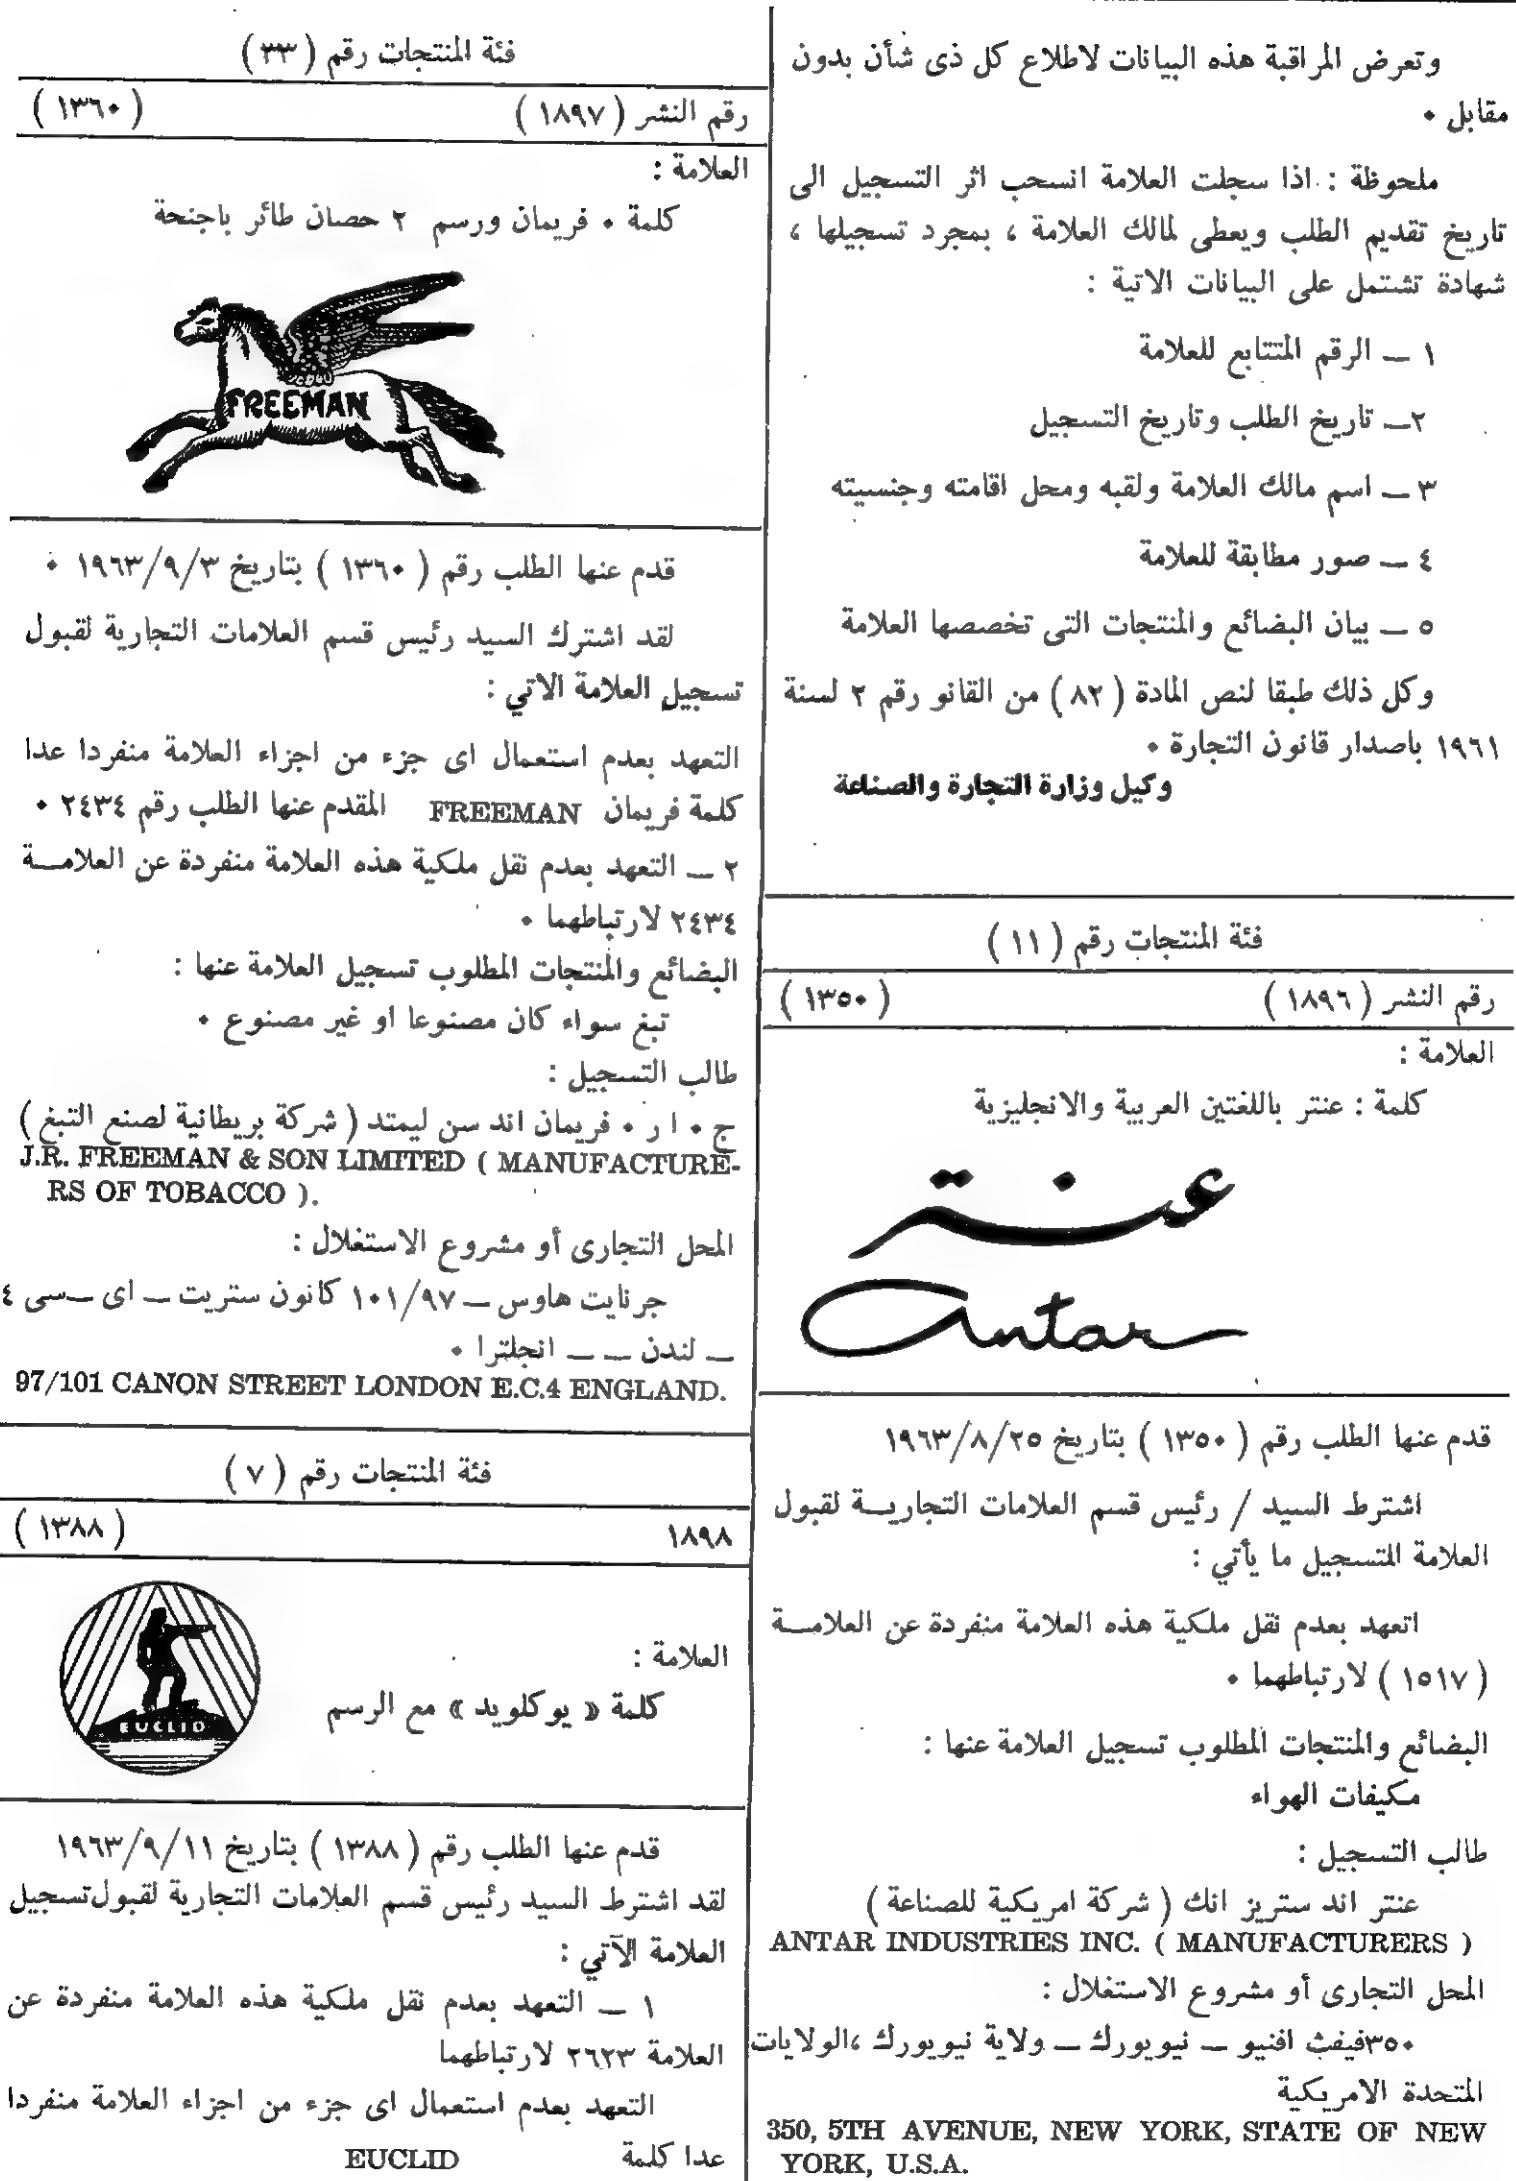 وتعرض المراقبة هذه البيانات لاطلاع كل ذى شأن بدون
مقابل ٠
ملحوظة : اذا سجلت العلامة انسحب اثر التسجيل الى
تاريخ تقديم الطلب ويعطى لمالك العلامة ، بمجرد تسجيلها ،
شهادة تشتمل على البيانات الاتية :
١ ــ الرقم المتتابع للعلامة
٢ــ تاريخ الطلب وتاريخ التسجيل
٣ ــ اسم مالك العلامة ولقبه ومحل اقامته وجنسيته
٤ ــ صور مطابقة للعلامة
٥ ــ بيان البضائع والمنتجات التى تخصصها العلامة
وكل ذلك طبقا لنص المادة ( ٨٢ ) من القانو رقم ٢ لسنة
١٩٦١ باصدار قانون التجارة ٠
وكيل وزارة التجارة والصناعة
فئة المنتجات رقم ( ١١ )
رقم النشر ( ١٨٩٦ ) ( ١٣٥٠ )
العلامة :
كلمة : عنتر باللغتين العربية والانجليزية
عنتر
Antar
قدم عنها الطلب رقم ( ١٣٥٠ ) بتاريخ ١٩٦٣/٨/٢٥
اشترط السيد / رئيس قسم العلامات التجاريــة لقبول
العلامة المتسجيل ما يأتي :
اتعهد بعدم نقل ملكية هذه العلامة منفردة عن العلامــة
( ١٥١٧ ) لارتباطهما ٠
البضائع والمنتجات المطلوب تسجيل العلامة عنها :
مكيفات الهواء
طالب التسجيل :
عنتر اند ستريز انك ( شركة امريكية للصناعة )
ANTAR INDUSTRIES INC. ( MANUFACTURERS )
المحل التجارى أو مشروع الاستغلال :
٣٥٠فيفث افنيو ــ نيويورك ــ ولاية نيويورك ،الولايات
المتحدة الامريكية
350, 5TH AVENUE, NEW YORK, STATE OF NEW
YORK, U.S.A.
فئة المنتجات رقم ( ٣٣ )
رقم النشر ( ١٨٩٧ ) ( ١٣٦٠ )
العلامة :
كلمة ٠ فريمان ورسم ٢ حصان طائر باجنحة
FREEMAN
قدم عنها الطلب رقم ( ١٣٦٠ ) بتاريخ ١٩٦٣/٩/٣ ٠
لقد اشترك السيد رئيس قسم العلامات التجارية لقبول
تسجيل العلامة الاتي :
التعهد بعدم استعمال اى جزء من اجزاء العلامة منفردا عدا
كلمة فريمان FREEMAN المقدم عنها الطلب رقم ٢٤٣٤ ٠
٢ ــ التعهد بعدم نقل ملكية هذه العلامة منفردة عن العلامــة
٢٤٣٤ لارتباطهما ٠
البضائع والمنتجات المطلوب تسجيل العلامة عنها :
تبغ سواء كان مصنوعا او غير مصنوع ٠
طالب التسجيل :
ج ٠ ا ر ٠ فريمان اند سن ليمتد ( شركة بريطانية لصنع التبغ )
J.R. FREEMAN & SON LIMITED ( MANUFACTURE-
RS OF TOBACCO ).
المحل التجارى أو مشروع الاستغلال :
جرنايت هاوس ــ ١٠١/٩٧ كانون ستريت ــ اى ــسى ٤
ــ لندن ــ ــ انجلترا ٠
97/101 CANON STREET LONDON E.C.4 ENGLAND.
فئة المنتجات رقم ( ٧ )
١٨٩٨ ( ١٣٨٨ )
العلامة :
كلمة « يوكلويد » مع الرسم
EUCLID
قدم عنها الطلب رقم ( ١٣٨٨ ) بتاريخ ١٩٦٣/٩/١١
لقد اشترط السيد رئيس قسم العلامات التجارية لقبول‌تسجيل
العلامة الآتي :
١ ــ التعهد بعدم نقل ملكية هذه العلامة منفردة عن
العلامة ٢٦٢٣ لارتباطهما
التعهد بعدم استعمال اى جزء من اجزاء العلامة منفردا
عدا كلمة EUCLID